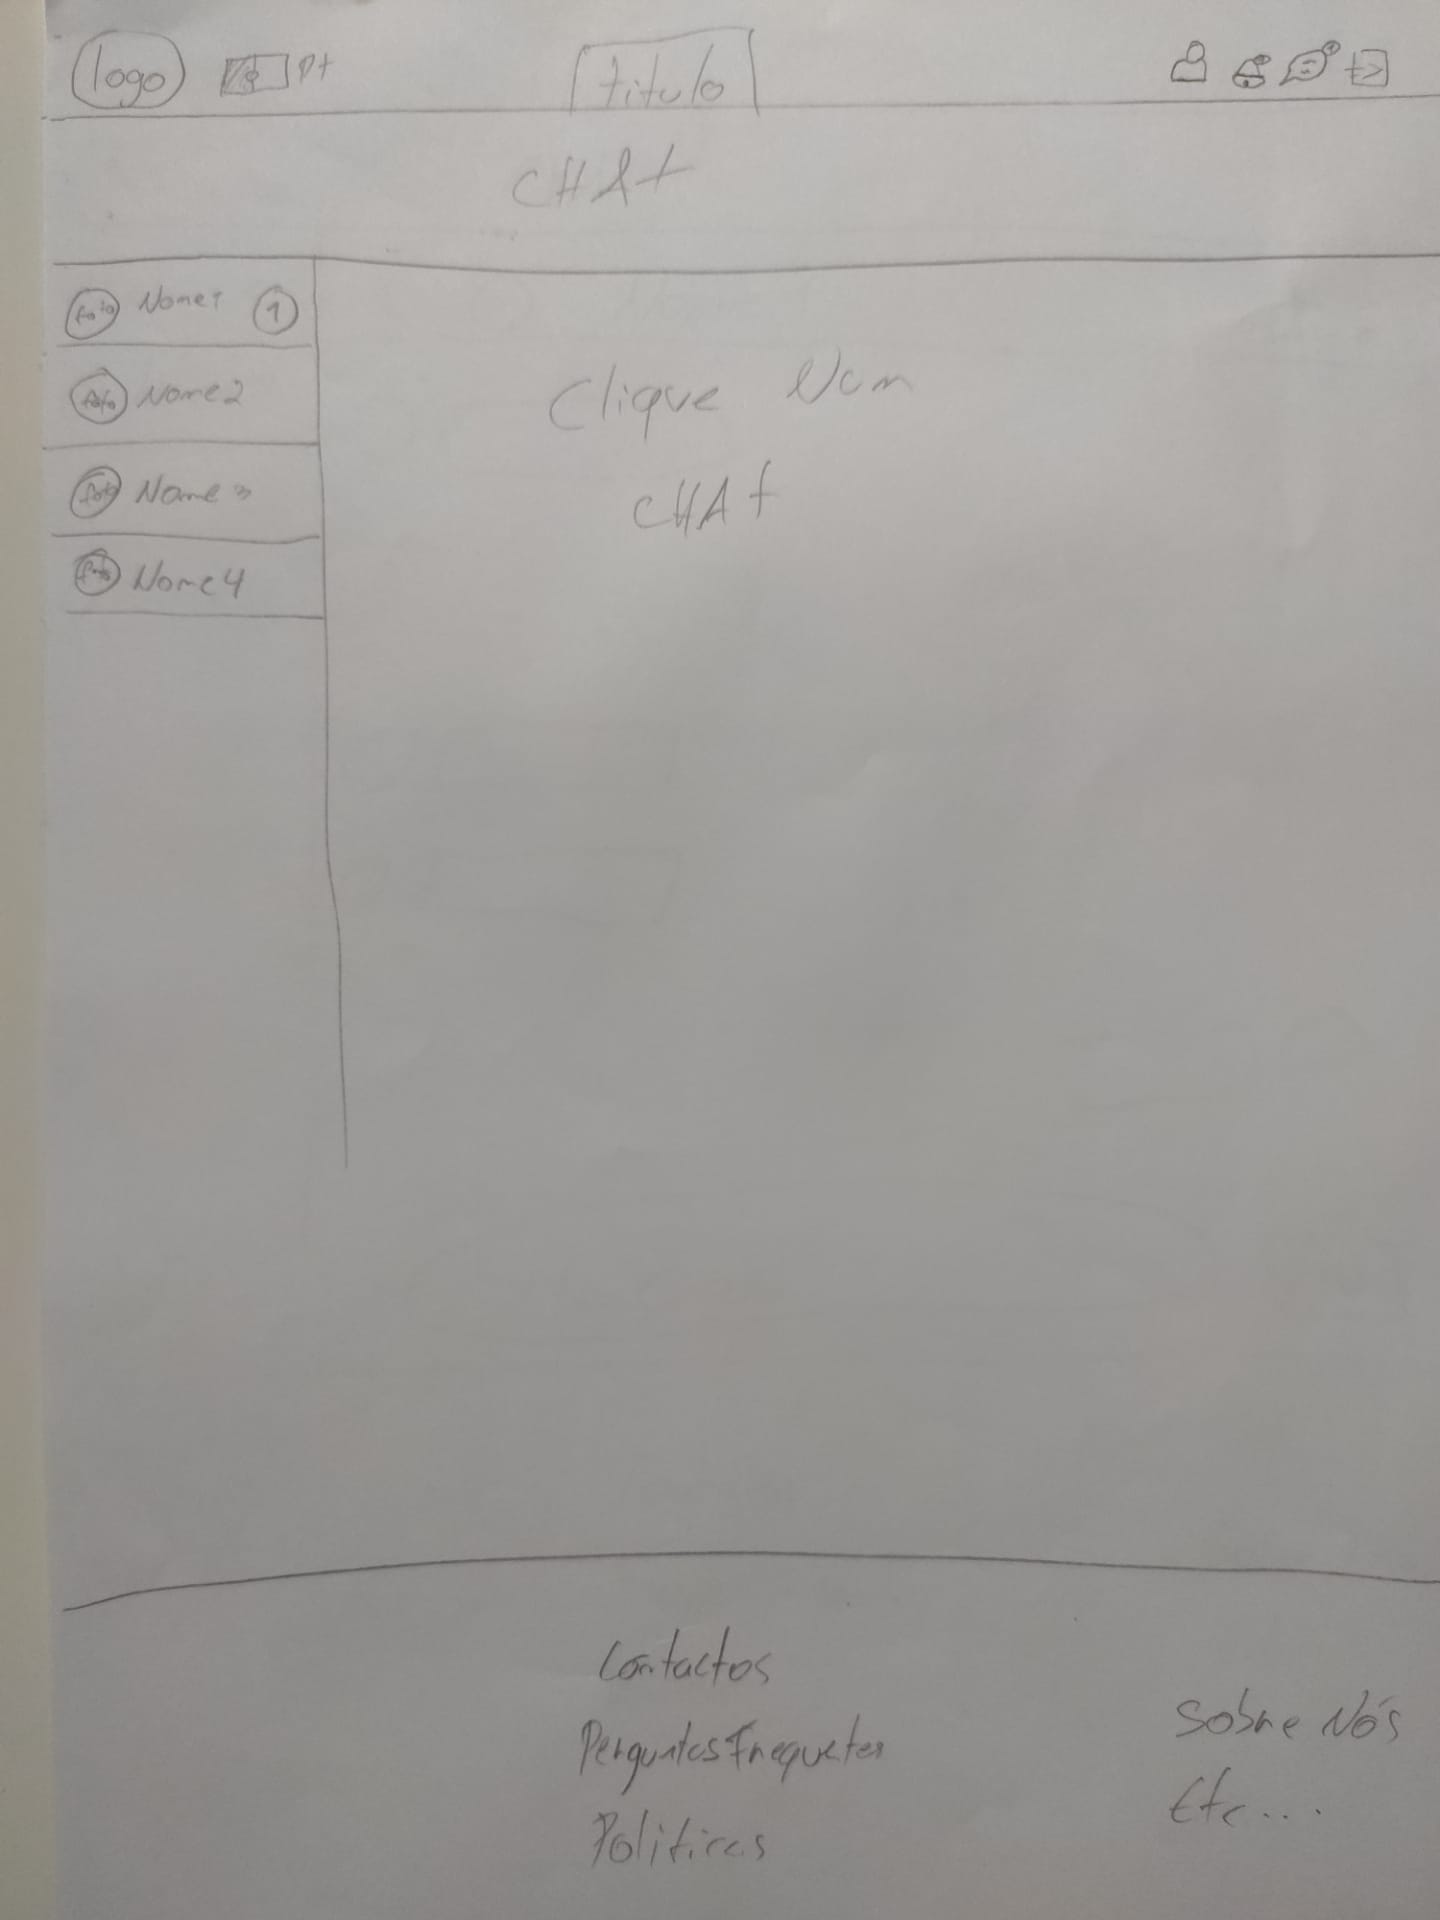 logo Pt titulo
CHAt
foto Nome1 1
foto Nome2
foto Nome3
foto Nome4
Clique Num
CHAt
Contactos
Perguntas Frequetes
Politicas
Sobre Nós
Etc....